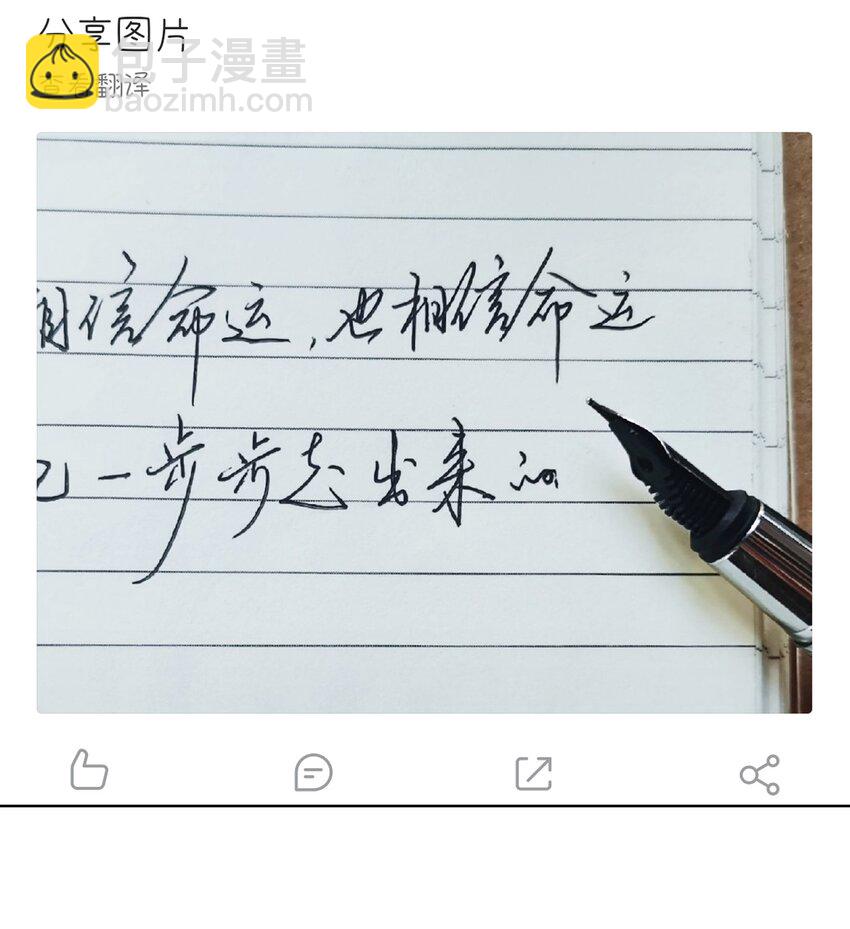 分享图片
包子漫畫
查看翻译
baozimh.com
相信命运，也相信命运
己一步步走出来的